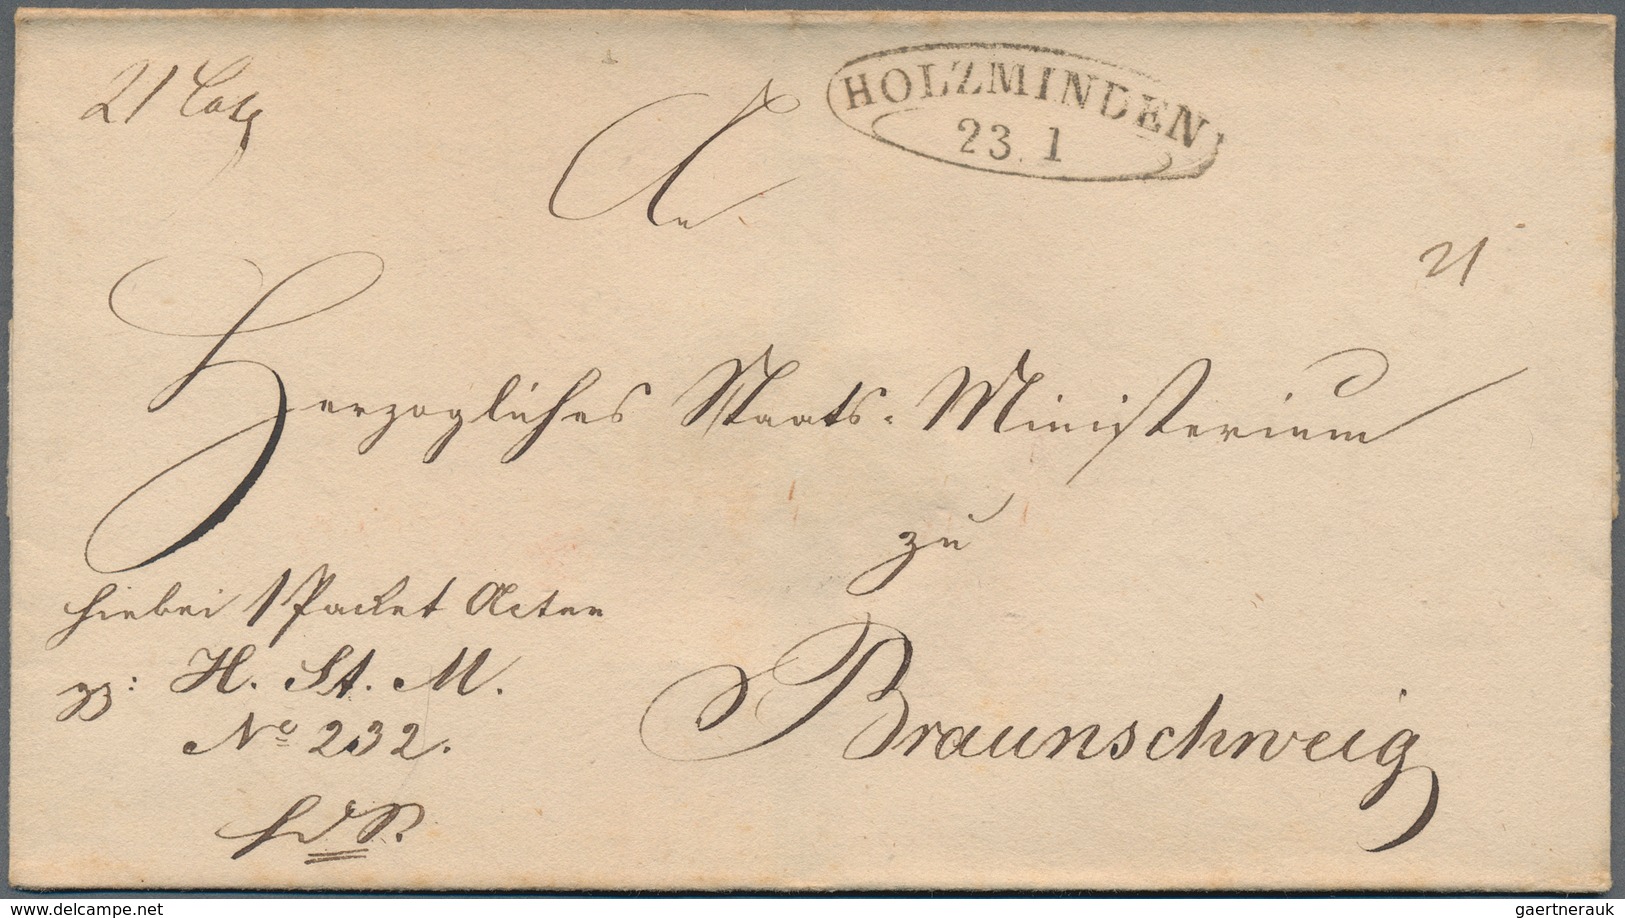 21 Loth
HOLZMINDEN
23. 1
An
21
Herzogliches Staats-Ministerium
zu
hiebei 1 Packet Acten
gz: H. St. M.
No 232.
Braunschweig
HdS.
© www.delcampe.net
gaertnerauk